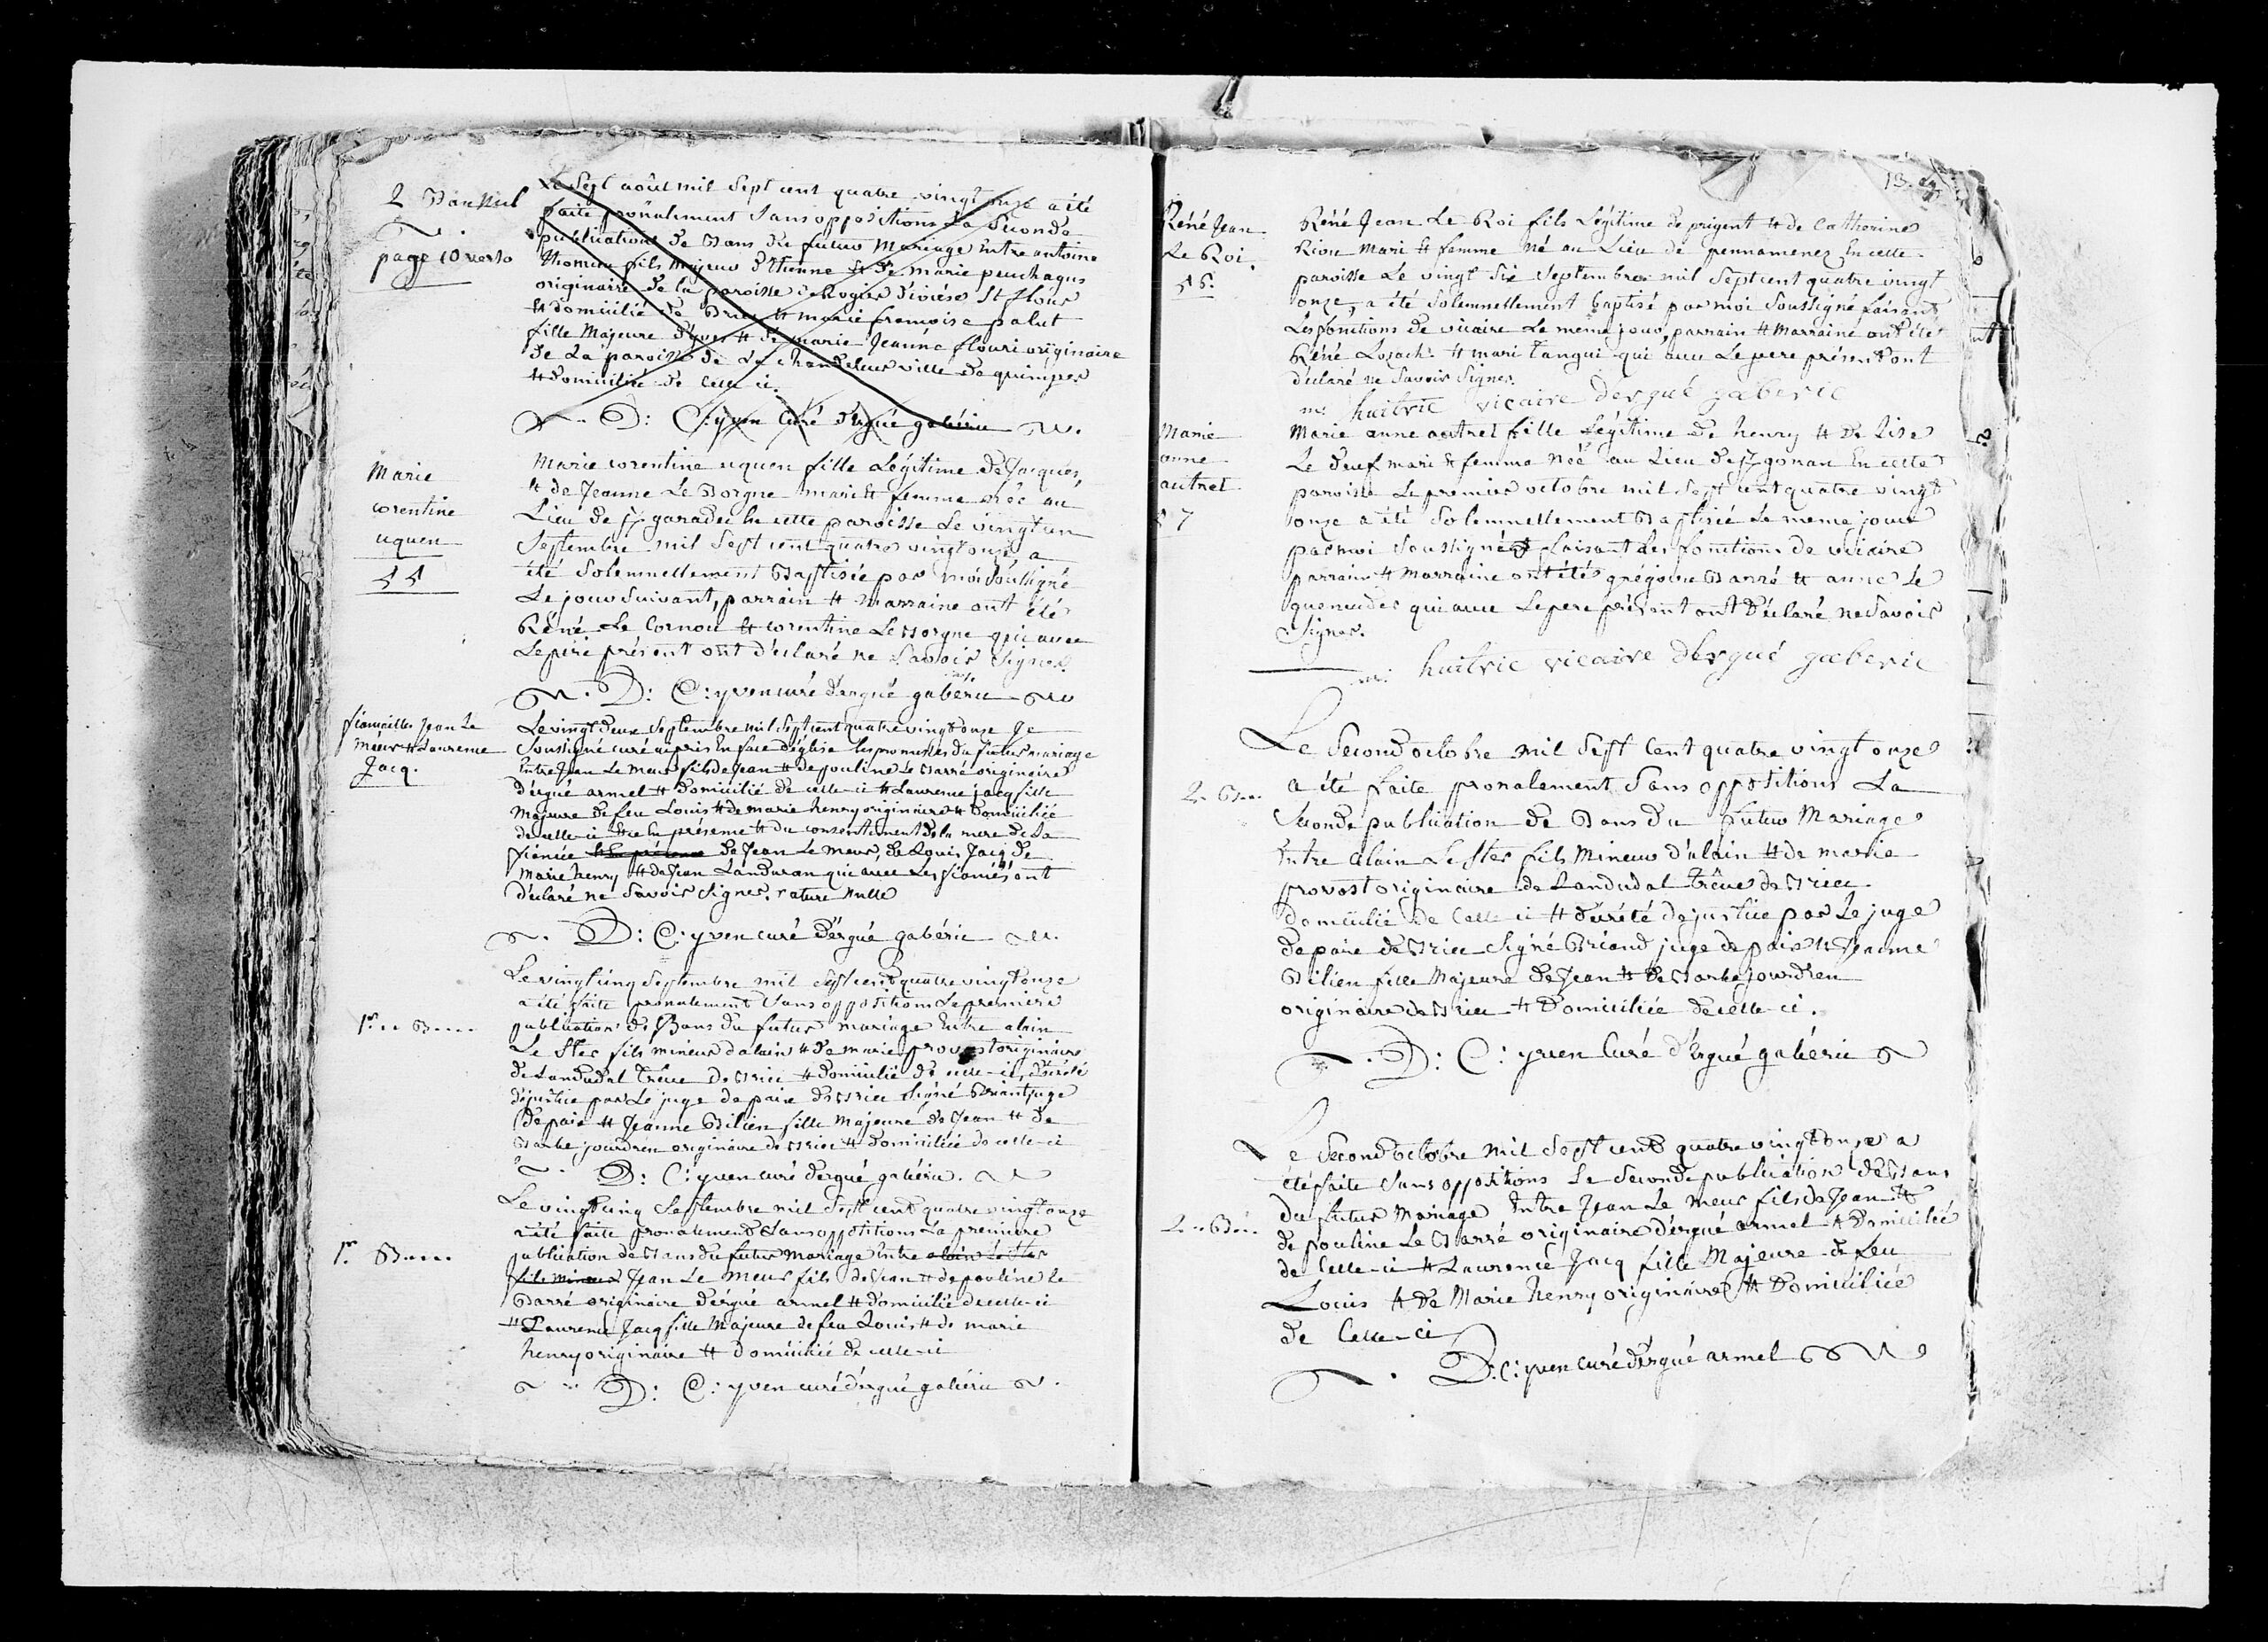 2 Ban Nul
page 10 verso
Le Sept août mil Sept cent quatre vingt onze a été
faite prônalement Sans oppositions La Seconde
publication de Bans du futur Mariage Entre antoine
fils Majeur d'Etienne et de marie
originaire de la paroisse de diocèse St flour
et domicilié de Briec et marie francoise palut
fille Majeure d'yves et de marie Jeanne flouri originaire
de La paroisse de La Chandeleur ville de quimper
et domiciliée de Celle ci.
D: C: yven Curé d'Ergué gabéric
Marie
corentine
uguen
55
Marie corentine uguen fille Légitime de Jacques,
et de Jeanne Le Borgne mari et femme née au
Lieu de En cette paroisse Le vingt un
Septembre mil Sept cent quatre vingt onze a
été Solemnellement Baptisée par moi Soussigné
Le jour Suivant, parrain et marraine ont été
Réné Le Cornou et corentine Le Borgne qui avec
Le pere présent ont déclaré ne Savoir Signer
D: C: yven curé d'ergué gabéric
fiancailles Jean Le
Meur et Laurence
Jacq.
Le vingt deux Septembre mil Sept cent quatre vingt onze Je
Soussigné curé ai pris En face d'église les promesses du futur mariage
Entre Jean Le Meur fils de Jean et de pouline Le Barré originaire
d'érgué armel et domicilié de celle-ci et Laurence jacq fille
Majeure de feu Louis et de marie henry originaire et Domiciliée
de celle-ci En présence et du consentement de la mere de La
fiancée et En présence de Jean Le Meur, de Louis Jacq de
Marie henry et de Jean Landuran qui avec Les fiancés ont
déclaré ne Savoir Signer. rature nulle
D: C: yven curé d'érgué gabéric
1r. B....
Le vingt cinq Septembre mil Sept cent quatre vingt onze
a été faite prônalement Sans oppositions La premiere
publication de Bans du futur mariage Entre alain
Le Ster fils mineur d'alain et de marie provost originaire
de Landudal trêve de Briec et domicilié de celle-ci, décrété
de justice par Le juge de paix de Briec Signé Briant juge
de paix et Jeanne Bilien fille Majeure de Jean et de
Barbe jourdren originaire de Briec et Domiciliée de celle-ci
D: C: yven curé d'ergué gabéric.
1r. B....
Le vingt cinq Septembre mil Sept cent quatre vingt onze
a été faite prônalement Sans oppositions La premiere
publication de Bans du futur mariage Entre alain Le Ster
fils mineur Jean Le Meur fils de Jean et de pouline Le
Barré originaire d'érgué armel et domicilié de celle-ci
et Laurence Jacq fille Majeure de feu Louis et de marie
henry originaire et domiciliée de celle-ci
D: C: yven curé d'érgué gabéric
13.
Réné Jean
Le Roi.
56.
Réné Jean Le Roi fils Légitime de prigent et de Catherine
Riou Mari et femme Né au Lieu de pennamenez En cette
paroisse Le vingt Six Septembre mil Sept cent quatre vingt
onze, a été Solemnellement baptisé par moi Soussigné faisant
Les fonctions de vicaire Le meme jour, parrain et Marraine ont été
Réné Lozach et mari Tangui qui avec Le pere présent ont
déclaré ne Savoir Signer.
huitric vicaire dergué gaberic
Marie
anne
autret
57
Marie anne autret fille Légitime de henry et de Lise
Le deuf mari et femme Née au Lieu de En cette
paroisse Le premier octobre mil Sept cent quatre vingt
onze a été Solemnellement Baptisée Le meme jour
par moi Soussigné faisant Les fonctions de vicaire
parrain et Marraine ont été grégoire Barré et anne Le
quemeder qui avec Le pere présent ont déclaré ne Savoir
Signer.
huitric vicaire dergué gaberic
2. B...
Le Second octobre mil Sept Cent quatre vingt onze
a été faite prônalement Sans oppositions La
Seconde publication de Bans du futur Mariage
Entre alain Le Ster fils Mineur d'alain et de marie
provost originaire de Landudal trêve de Briec
domicilié de Celle ci et décrété de justice par Le juge
de paix de Briec Signé Briand juge de paix et Jeanne
Bilien fille Majeure de Jean et de Barbe jourdren
originaire de Briec et Domiciliée de celle-ci.
D: C: yven Curé d'Ergué gabéric
2.. B..
Le Second octobre mil Sept cent quatre vingt onze a
été faite Sans oppositions Le Seconde publication de Bans
du futur Mariage Entre Jean Le Meur fils de Jean et
de pouline Le Barré originaire d'érgué armel et Domicilié
de Celle-ci et Laurence Jacq fille Majeure de feu
Louis et de Marie henry originaire et Domiciliée
de Celle-ci
D: C: yven curé d'érgué armel